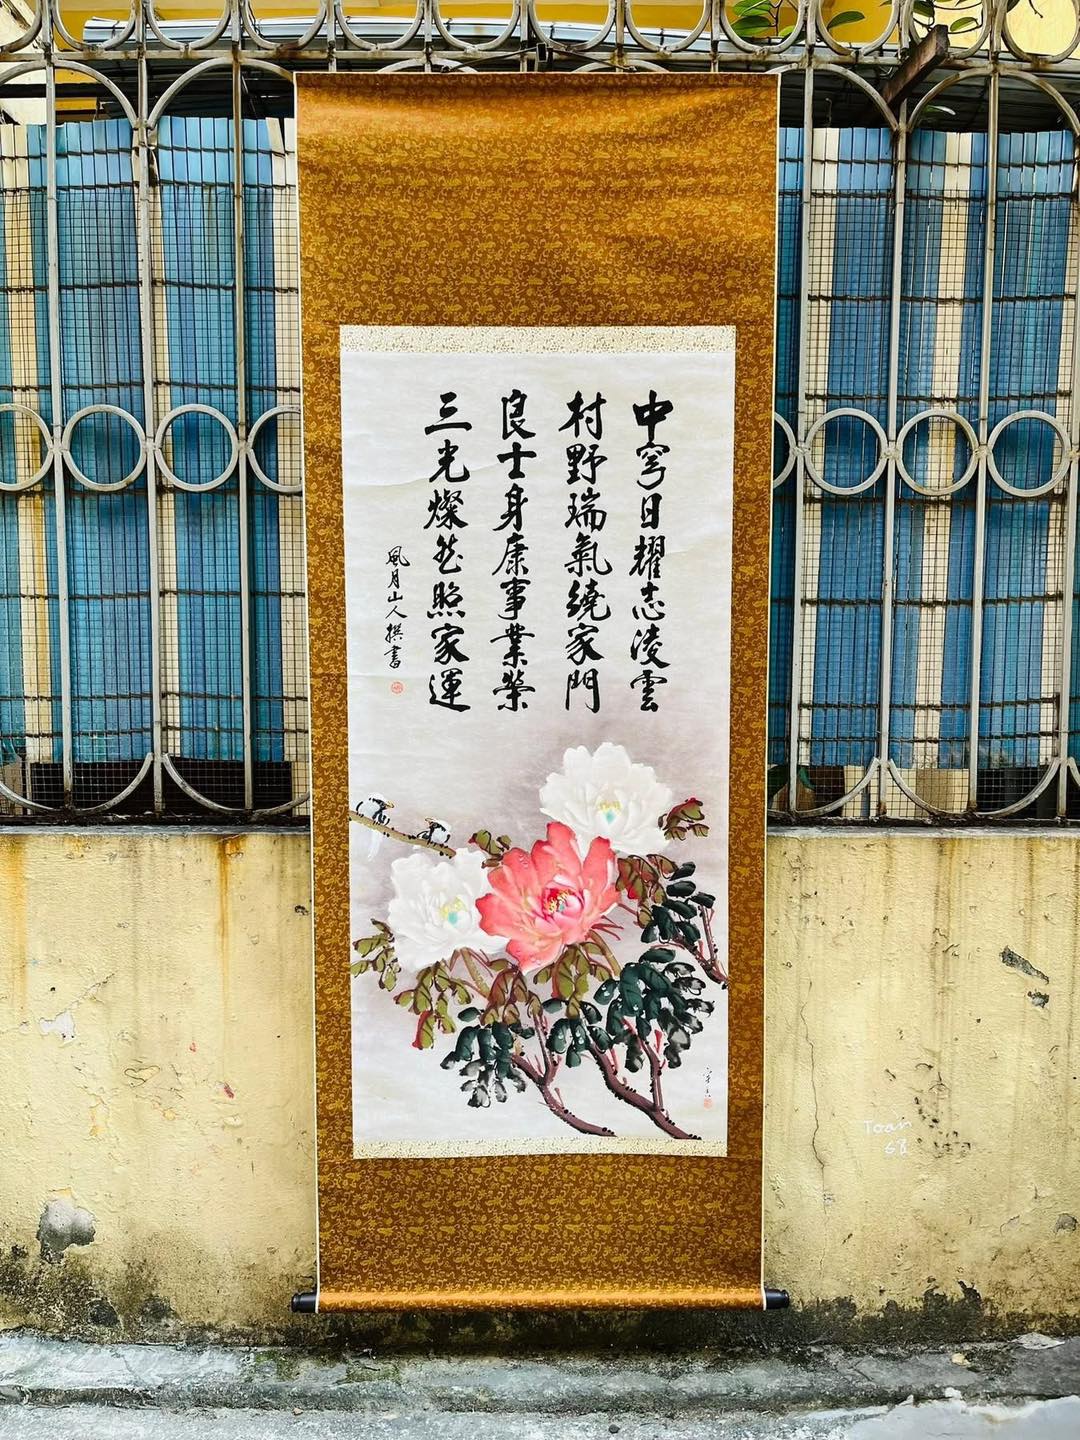 中穹日耀志凌雲
村野瑞氣繞家門
良士身康事業榮
三光燦然照家運
風月山人撰書
Toan
68